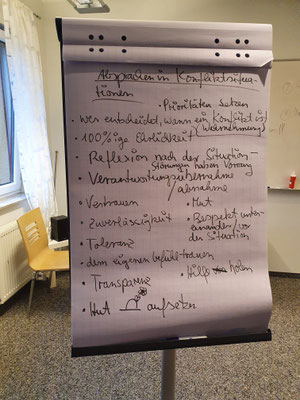 Absprachen in Konfliktsitua-
tionen
• Prioritäten setzen
• wer entscheidet, wann ein Konflikt ist
(Wahrnehmung)
• 100%ige Ehrlichkeit
• Reflexion nach der Situation
- Störungen haben Vorrang
• Verantwortungsübernahme
/abnahme
• Vertrauen
• Mut
• Zuverlässigkeit
• Respekt unter-
einander/vor
der Situation
• Toleranz
• dem eigenen Gefühl trauen
• Hilfe holen
• Transparenz
• Hut aufsetzen